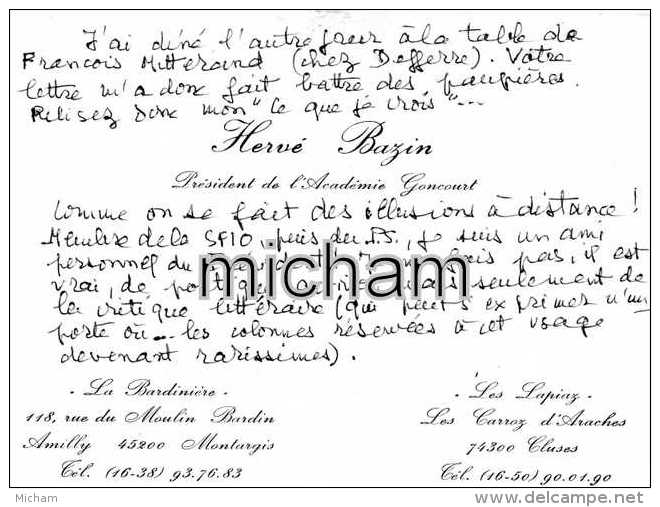 J'ai dîné l'autre jour à la table de
François Mitterand (chez Defferre). Votre
lettre m'a donc fait battre des paupières.
Relisez donc mon "Ce que je crois"...
Hervé Bazin
Président de l'Académie Goncourt
Comme on se fait des illusions à distance !
Membre de la SFIO, puis du P.S., je suis un ami
personnel du fais pas, il est
vrai, de mais seulement de
la critique littéraire (qui peut s'exprimer n'im
porte où... les colonnes réservées à cet usage
devenant rarissimes).
micham
- La Bardinière -
118, rue du Moulin Bardin
Amilly 45200 Montargis
Tél. (16-38) 93.76.83
- Les Lapiaz -
Les Carroz d'Araches
74300 Cluses
Tél. (16-50) 90.01.90
Micham
delcampe.net